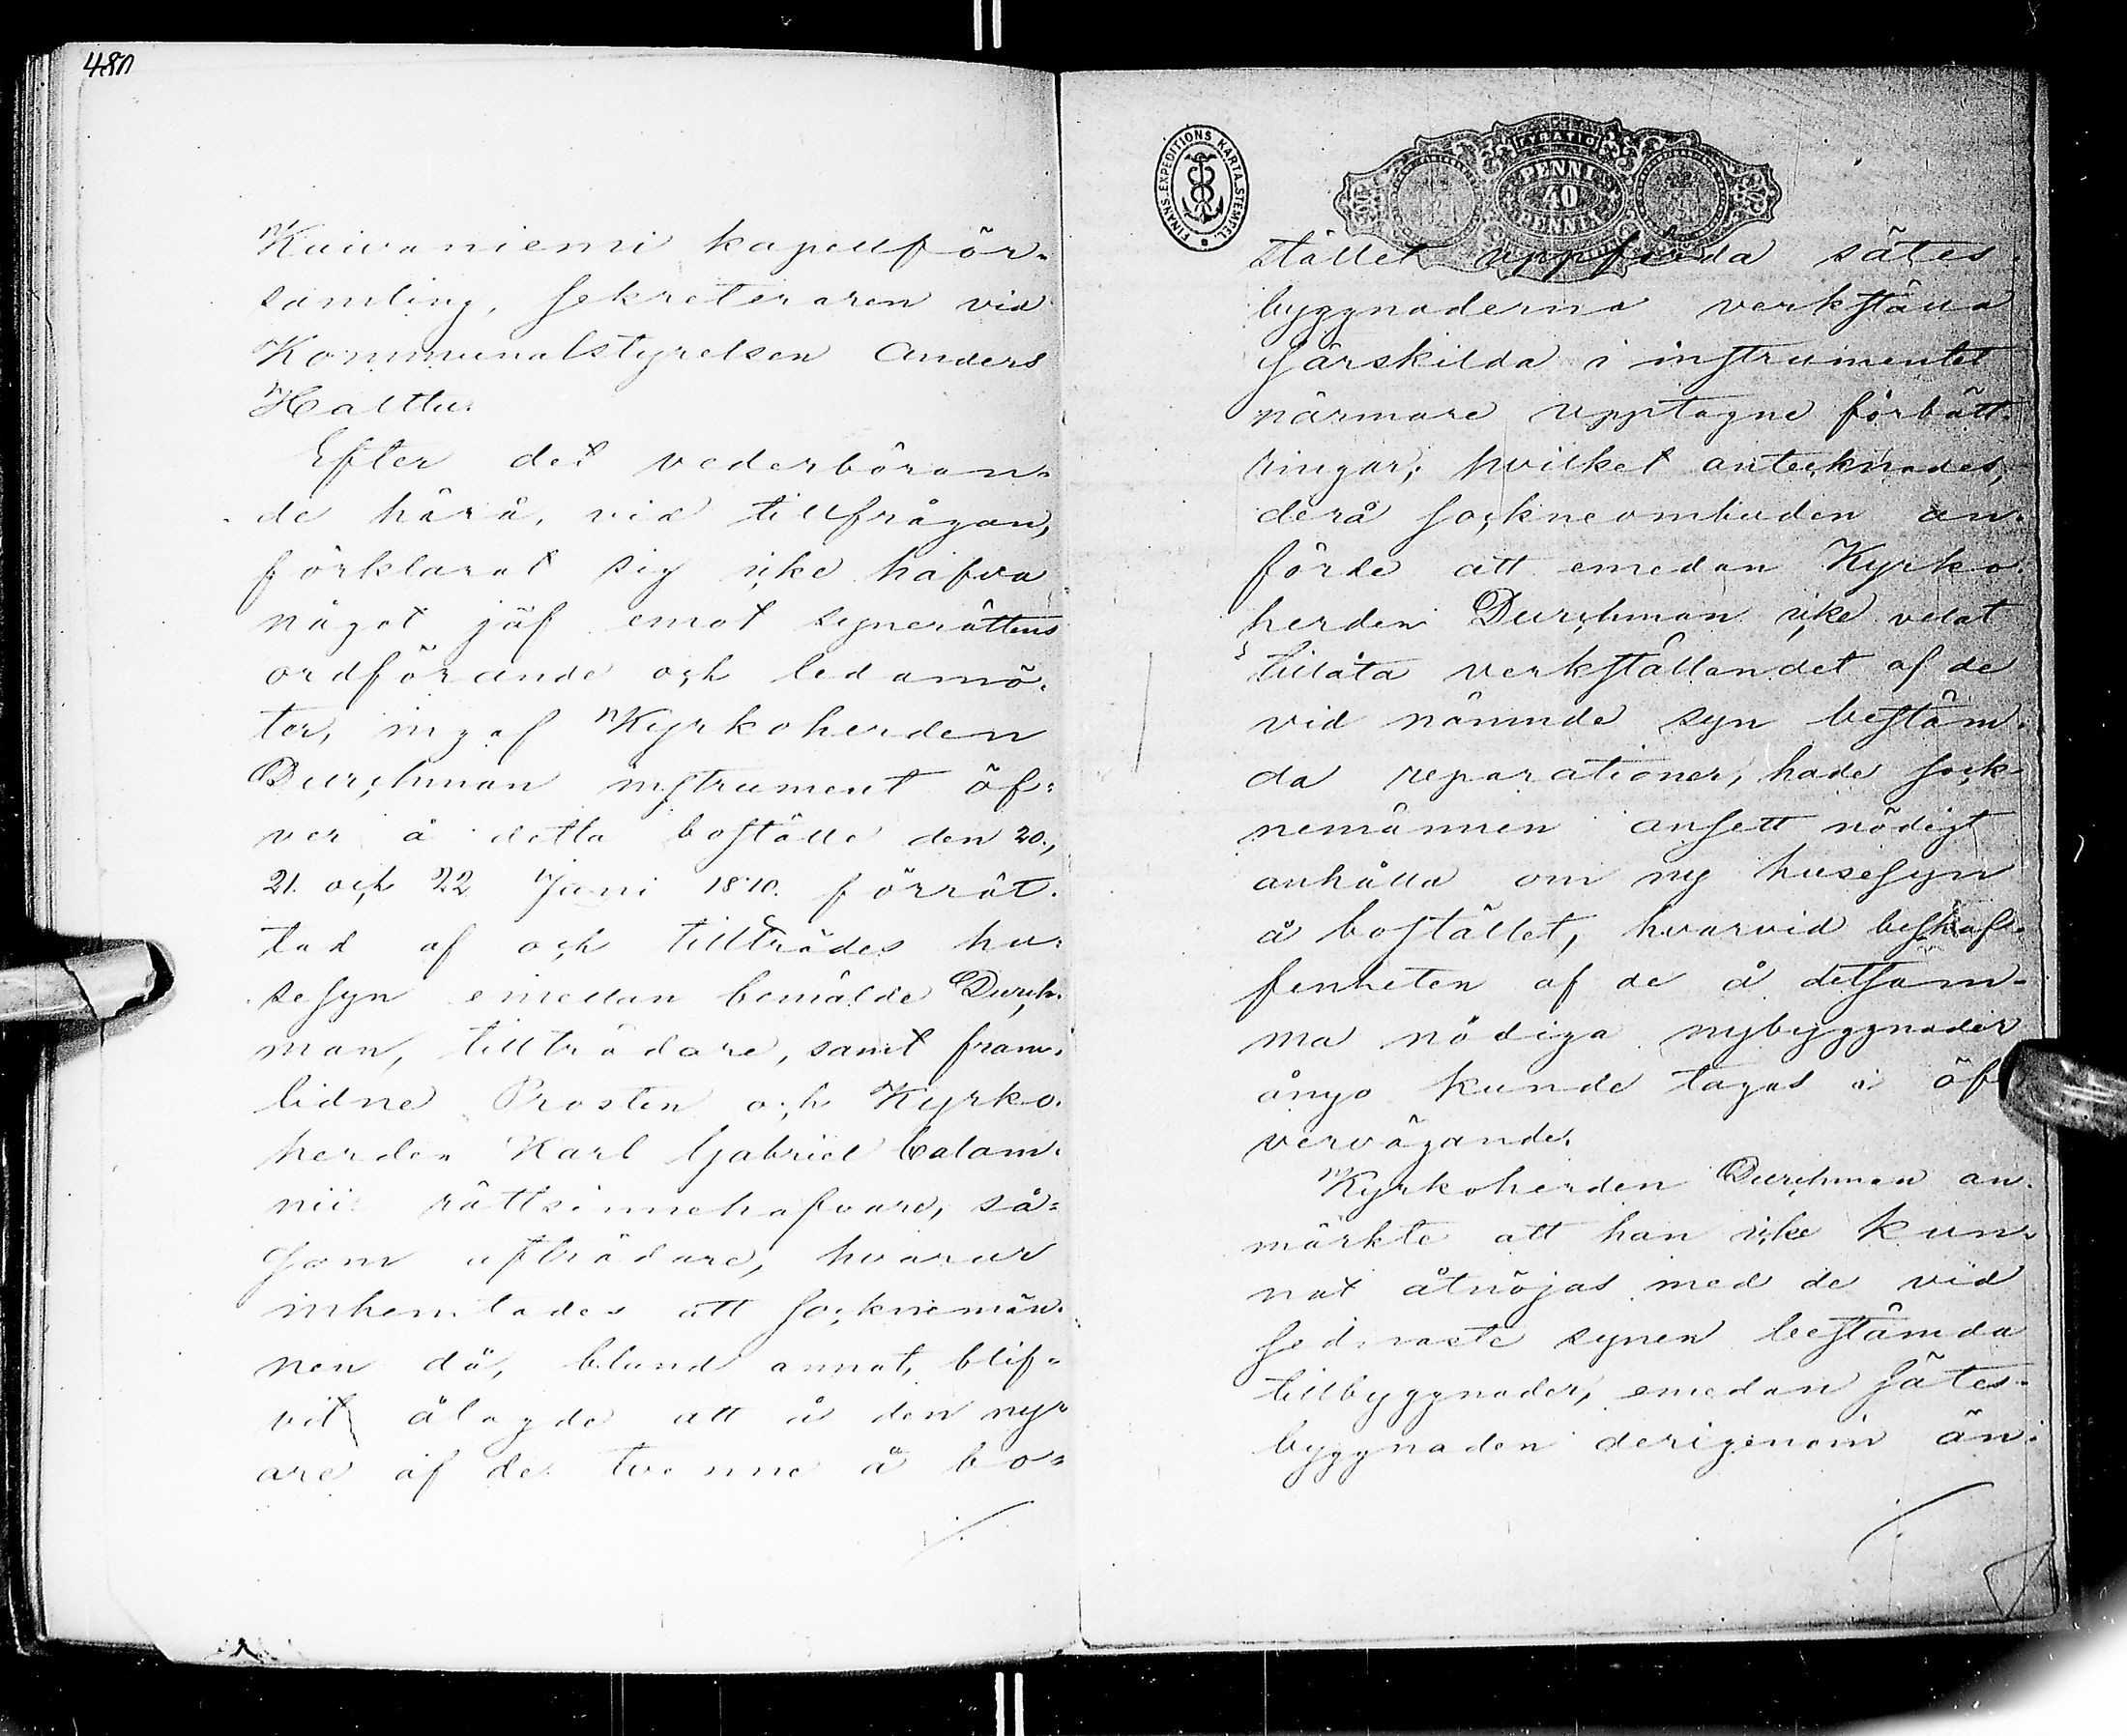 480
Kuivaniemi kapellför-
samling, Sekreteraren vid
Kommunalstyrelsen Anders
Halttu.
Efter det vederböran-
de härå, vid tillfrågan,
förklarat sig icke hafva
något jäf emot synerättens
ordförande och ledamö-
ter, ingaf Kyrkoherden
Durchman instrument öf-
ver å detta boställe den 20.,
21. och 22 Juni 1870. förrät-
tad af och tillträdes hu-
sesyn emellan bemälde Durch-
man, tillträdare, samt fram-
lidne Prosten och Kyrko-
herden Karl Gabriel Calam-
nii rättsinnehafvare, så-
som afträdare, hvarur
inhemtades att socknemän-
nen då, bland annat, blif-
vit ålagde att å den ny-
are af de tvenne å bo-
FINANS.EXPEDITIONS KARTA.STEMPEL
PENNI
40
PENNIÄ
stället uppförda sätes
byggnaderna verkställa
särskilda i instrumentet
närmare upptagne förbätt-
ringar; hvilket antecknades,
derå sockneombuden an-
förde att emedan Kyrko
herden Durchman icke velat
tillåta verkställandet af de
vid nämnde syn bestäm-
da reparationer, hade sock-
nemännen ansett nödigt
anhålla om ny husesyn
å bostället, hvarvid beskaf-
fenheten af de å detsam-
ma nödiga nybyggnader
ånyo kunde tagas i öf
vervägande.
Kyrkoherden Durchman an-
märkte att han icke kun-
nat åtnöjas med de vid
sednaste synen bestämda
tillbyggnader, emedan sätes-
byggnaden derigenom än-